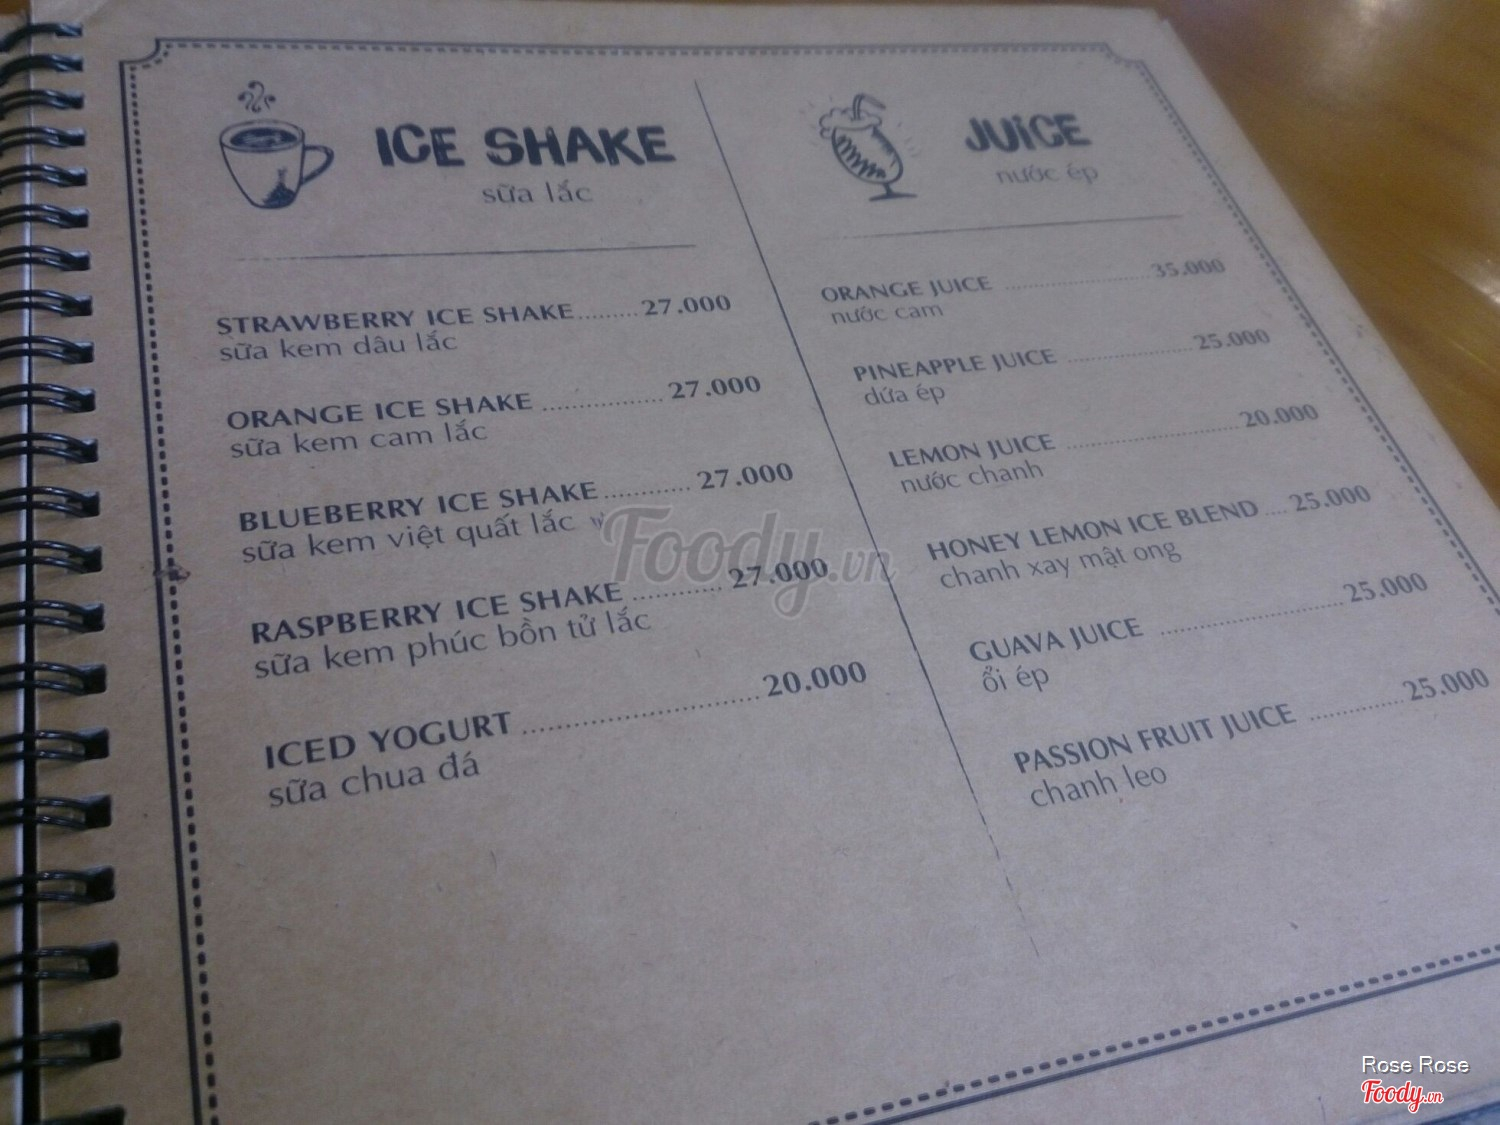 ICE SHAKE
sữa lắc
STRAWBERRY ICE SHAKE.........27.000
sữa kem dâu lắc
ORANGE ICE SHAKE ..................27.000
sữa kem cam lắc
BLUEBERRY ICE SHAKE............27.000
sữa kem việt quất lắc
RASPBERRY ICE SHAKE ............27.000
sữa kem phúc bồn tử lắc
ICED YOGURT ..............................20.000
sữa chua đá
JUICE
nước ép
ORANGE JUICE ........................35.000
nước cam
PINEAPPLE JUICE ....................25.000
dứa ép
LEMON JUICE ............................20.000
nước chanh
HONEY LEMON ICE BLEND ....25.000
chanh xay mật ong
GUAVA JUICE ............................25.000
ổi ép
PASSION FRUIT JUICE ..............25.000
chanh leo
Foody.vn
Rose Rose
Foody.vn